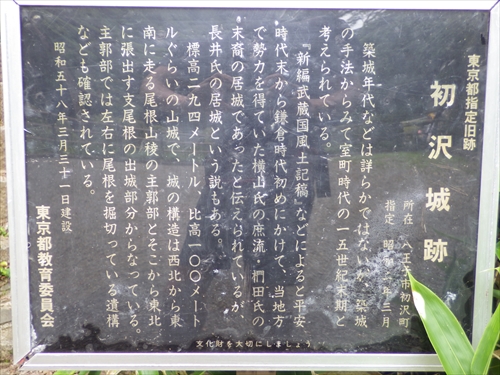 東京都指定旧跡
初沢城跡
所在 八王子市初沢町
指定 昭和 年三月
築城年代などは詳らかではないが、築城
の手法からみて室町時代の一五世紀末期と
考えられている。
『新編武蔵国風土記稿』などによると平安
時代末から鎌倉時代初めにかけて、当地方
で勢力を得ていた横山氏の庶流・椚田氏の
末裔の居城であったと伝えられているが、
長井氏の居城という説もある。
標高二九四メートル 比高一〇〇メート
ルぐらいの山城で、城の構造は西北から東
南に走る尾根山稜の主郭部とそこから東北
に張出す支尾根の出城部分からなっている。
主郭部では左右に尾根を掘切っている遺構
なども確認されている。
昭和五十八年三月三十一日建設
東京都教育委員会
文化財を大切にしましょう